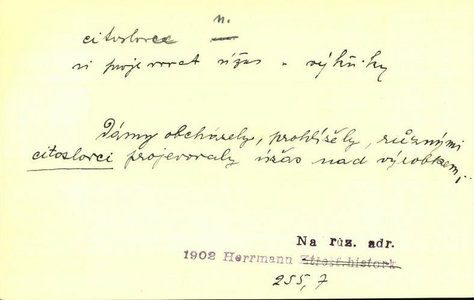 n.
citoslovce
si projevovat úžas výkřiky
Dámy obcházely, prohlížely, různými
citoslovci projevovaly úžas nad výrobkem;
Na růz. adr.
1902 Herrmann Ztrest.histork
255, 7